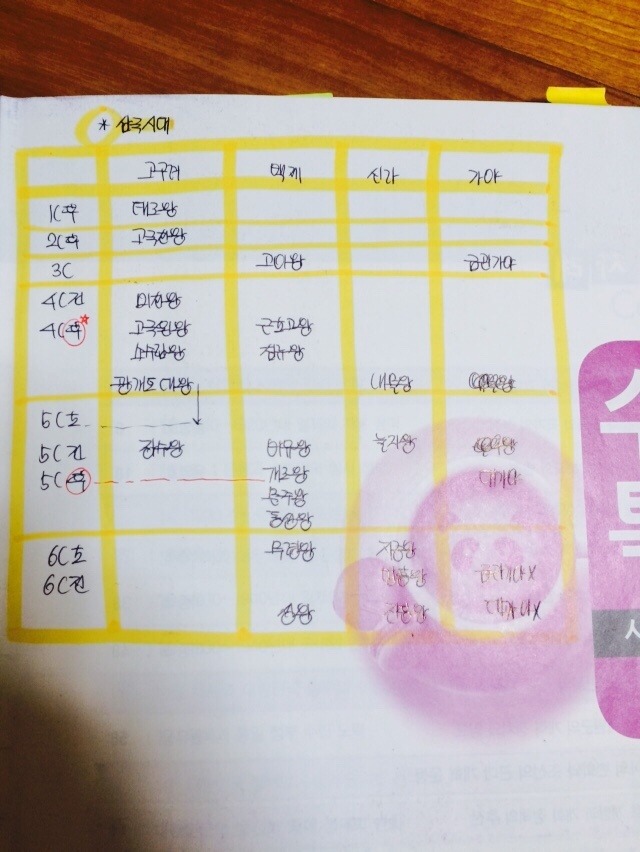 * 삼국시대
고구려 백제 신라 가야
1C후 태조왕
2C후 고국천왕
3C 고이왕 금관가야
4C전 미천왕
4C후 고국원왕 근초고왕
소수림왕 침류왕
광개토대왕 내물왕
5C초
5C전 장수왕 비유왕 눌지왕
5C후 개로왕 대가야
문주왕
동성왕
6C초 무령왕 지증왕
6C전 법흥왕 금관가야X
성왕 진흥왕 대가야X
수
특